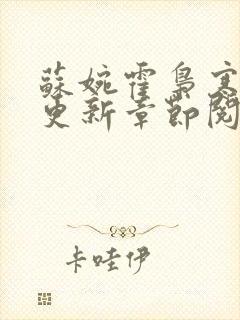 蘇婉霍梟寒
更新章節閱
卡哇伊